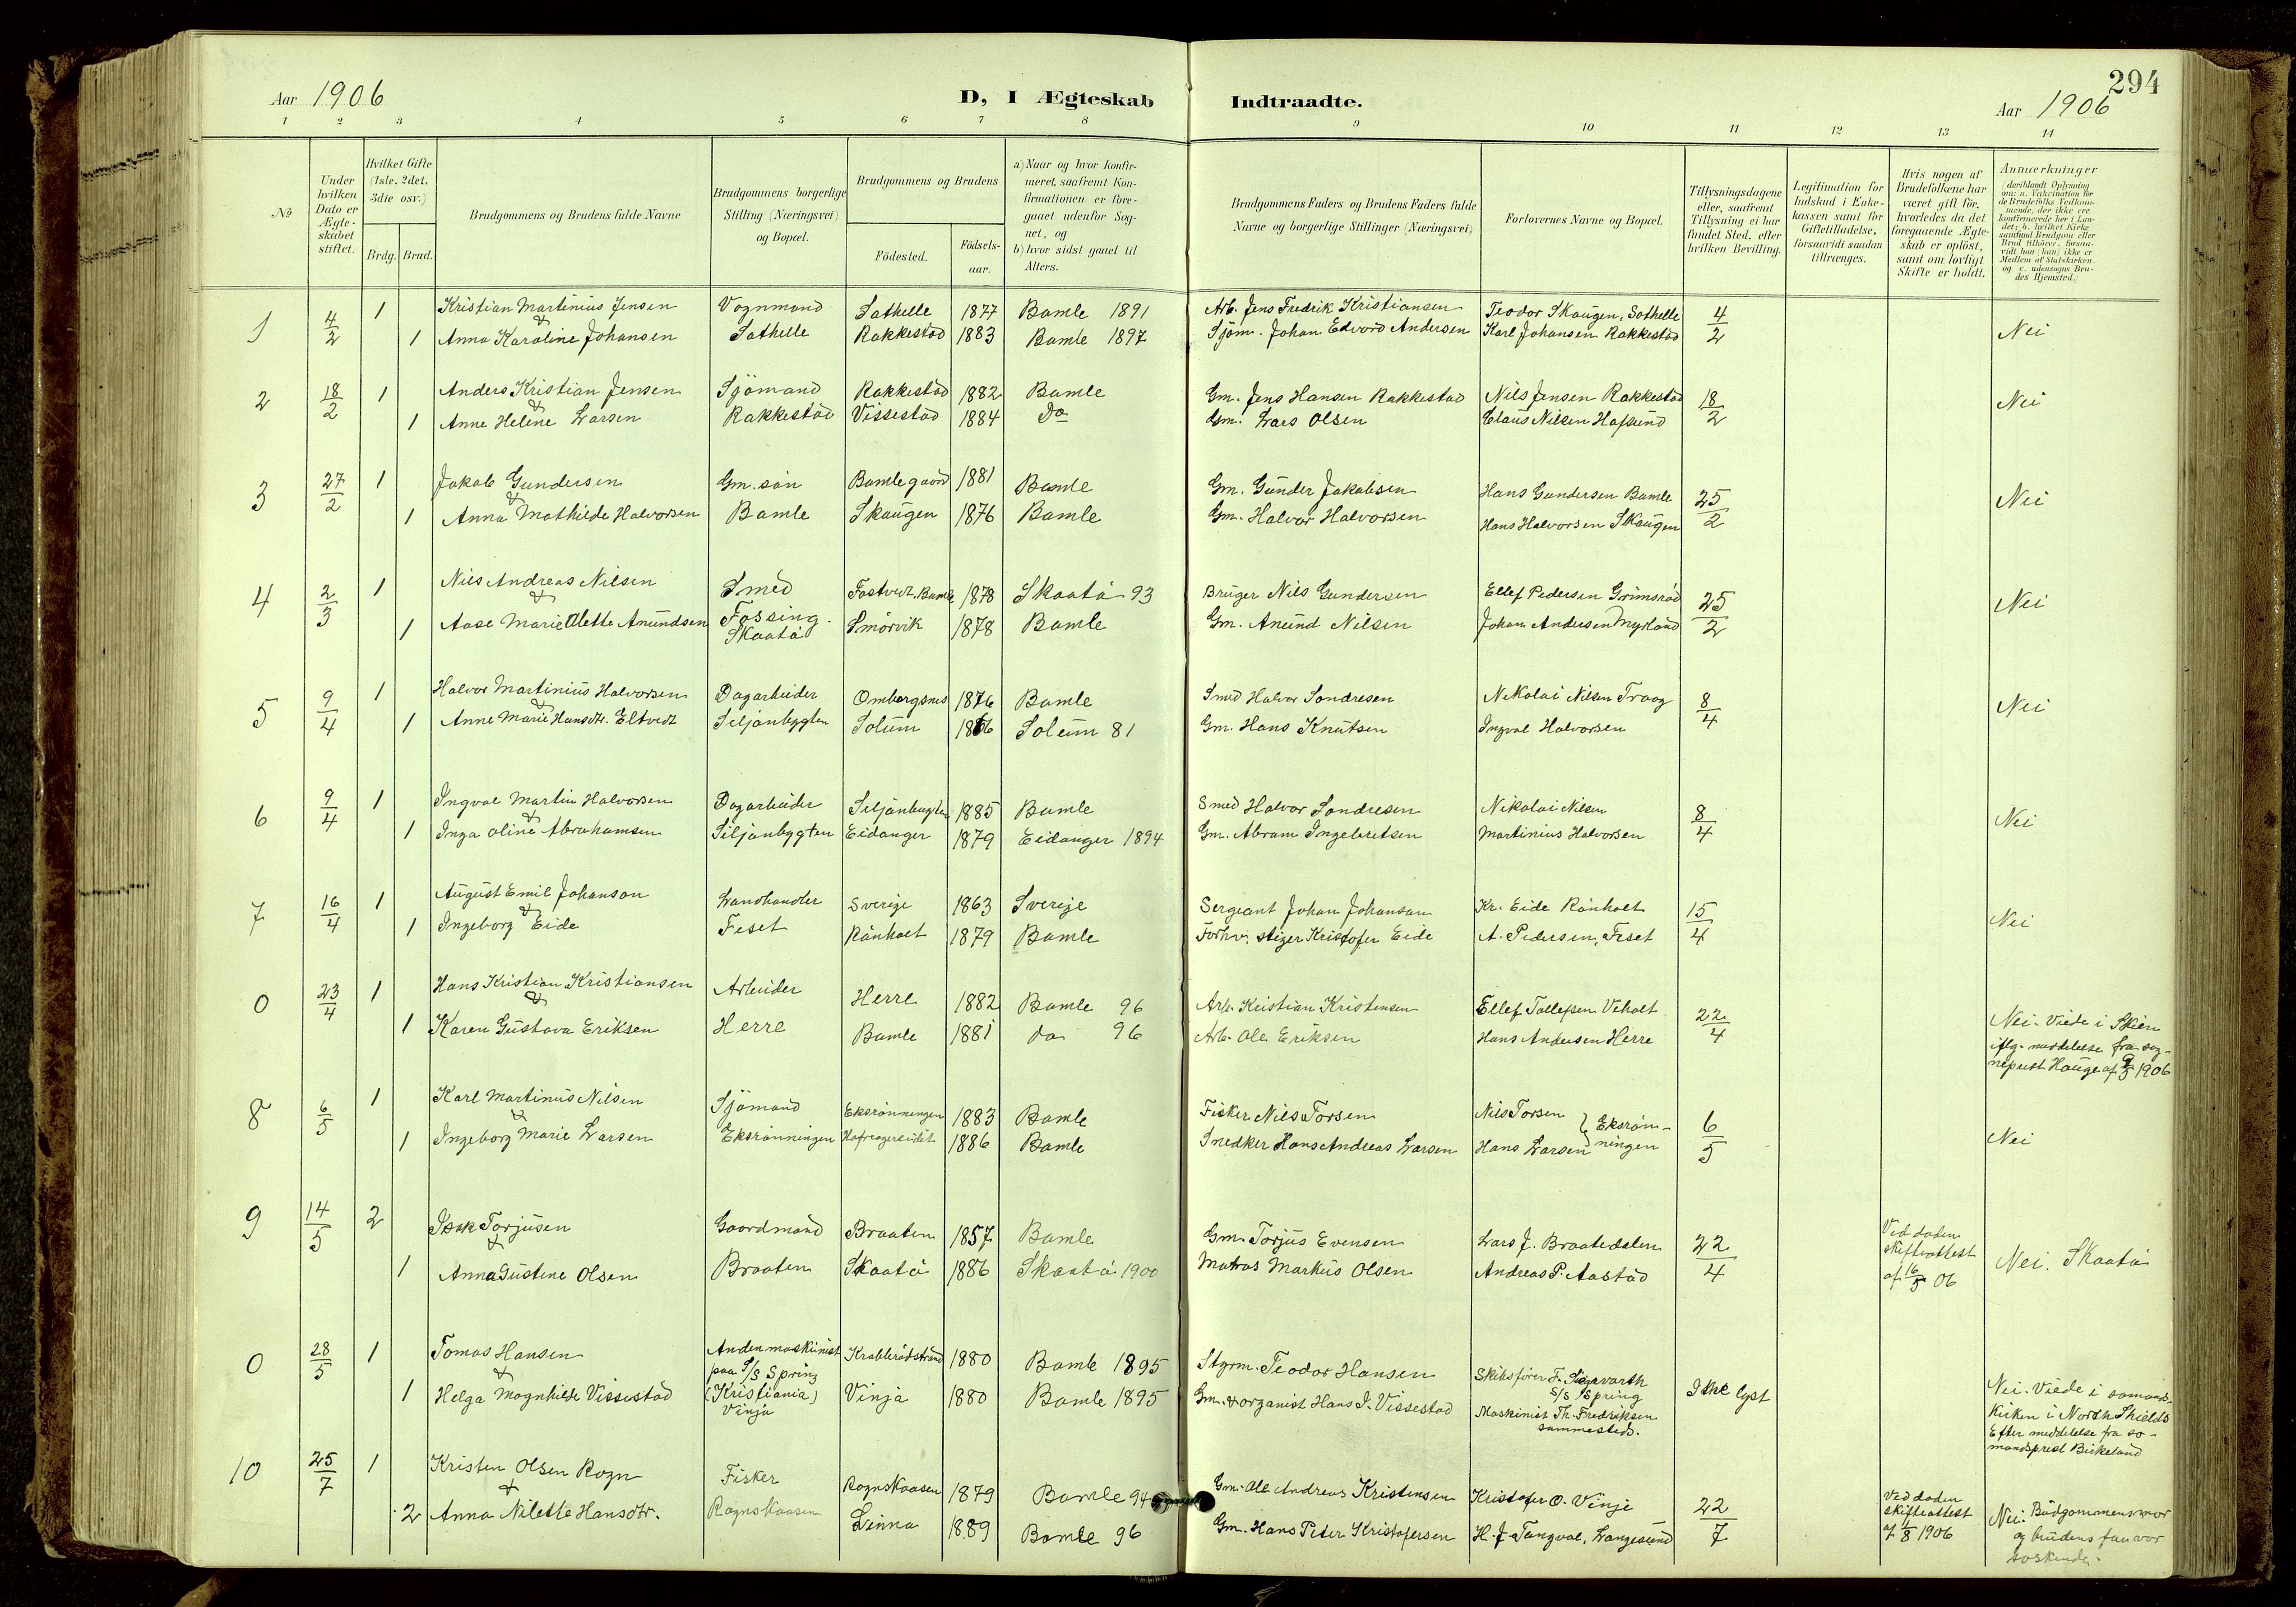 294
Aar 1906
D, I Ægteskab
Indtraadte.
Aar 1906
1 2 3 4 5 6 7 8 9 10 11 12 13 14
No
Under hvilken Dato er Ægteskabet stiftet.
Hvilket Gifte (1ste, 2det, 3die osv.)
Brdg. Brud.
Brudgommens og Brudens fulde Navne
Brudgommens borgerlige Stilling (Næringsvei) og Bopæl.
Brudgommens og Brudens
Födested.
Födselsaar.
a) Naar og hvor konfirmeret, saafremt Konfirmationen er foregaaet udenfor Sognet, og
b) hvor sidst gaaet til Alters.
Brudgommens Faders og Brudens Faders fulde Navne og borgerlige Stillinger (Næringsvei)
Forlovernes Navne og Bopæl.
Tillysningsdagene eller, saafremt Tillysning ei har fundet Sted, efter hvilken Bevilling.
Legitimation for Indskud i Enkekassen samt for Giftetilladelse, forsaavidt saadan tiltrænges.
Hvis nogen af Brudefolkene har været gift för, hvorledes da det foregaaende Ægteskab er oplöst, samt om lovligt Skifte er holdt.
Anmærkninger
(deriblandt Oplysning om: a. Vakcination for de Brudefolks Vedkommende, der ikke ere konfirmerede her i Landet; b. hvilket Kirkesamfund Brudgom eller Brud tilhörer, forsaavidt han (hun) ikke er Medlem af Statskirken. og c. udensogns Brudes Hjemsted.)
1 4/2 1 Kristian Martinius Jensen Vognmand Sathelle 1877 Bamle 1891 Arb. Jens Fredrik Kristiansen Teodor Skaugen, Sathelle 4/2 Nei
& 1 Anna Karoline Johansen Sathelle Rakkestad 1883 Bamle 1897 Sjöm. Johan Edvard Andersen Karl Johansen Rakkestad
2 18/2 1 Anders Kristian Jensen Sjömand Rakkestad 1882 Bamle Gm. Jens Hansen Rakkestad Nils Jensen Rakkestad 18/2 Nei
& 1 Anne Helene Larsen Rakkestad Vissestad 1884 Do Gm. Lars Olsen Claus Nilsen Hafsund
3 27/2 1 Jakob Gundersen Gm. sön Bamlegaard 1881 Bamle Gm. Gunder Jakobsen Hans Gundersen Bamle 25/2 Nei
& 1 Anna Mathilde Halvorsen Bamle Skaugen 1876 Bamle Gm. Halvor Halvorsen Hans Halvorsen Skaugen
4 2/3 1 Nils Andreas Nilsen Smed Fostvedt. Bamle 1878 Skaatö 93 Bruger Nils Gundersen Ellef Pedersen Grimsrød 25/2 Nei
& 1 Aase Marie Alette Amundsen Fossing. Skaatö Smörvik 1878 Bamle Gm. Anund Nilsen Johan Andersen Myrland
5 9/4 1 Halvor Martinius Halvorsen Dagarbeider Omborgsnes 1876 Bamle Smed Halvor Sondresen Nikolai Nilsen Traag 8/4 Nei
& 1 Anne Marie Hansdtr. Eltvedt Siljanbygten Solum 1866 Solum 81 Gm. Hans Knutsen Ingval Halvorsen
6 9/4 1 Ingval Martin Halvorsen Dagarbeider Siljanbygten 1885 Bamle Smed Halvor Sondresen Nikolai Nilsen 8/4 Nei
& 1 Inga Oline Abrahamsen Siljanbygten Eidanger 1879 Eidanger 1894 Gm. Abram Ingebretsen Martinius Halvorsen
7 16/4 1 August Emil Johanson Landhandler Sverige 1863 Sverige Sergeant Johan Johanson Kr. Eide Rönholt 15/4 Nei
& 1 Ingeborg Eide Feset Rönholt 1879 Bamle Forhv. stiger Kristofer Eide A. Pedersen, Feset
0 23/4 1 Hans Kristian Kristiansen Arbeider Herre 1882 Bamle 96 Arb. Kristian Kristensen Ellef Tollefsen Veholt 22/4
& 1 Karen Gustava Eriksen Herre Bamle 1881 do 96 Arb. Ole Eriksen Hans Andersen Herre
Nei. Viede i Skien
iflg. meddelelse fra sog-
neprest Hauge af 9/5 1906
8 6/5 1 Karl Martinius Nilsen Sjömand Eksrönningen 1883 Bamle Fisker Nils Torsen Nils Torsen } Eksrön- 6/5 Nei
& 1 Ingeborg Marie Larsen Eksrönningen 1886 Bamle Snedker Hans Andreas Larsen Hans Larsen ningen
9 14/5 2 Isak Torjusen Gaardmand Braaten 1857 Bamle Gm. Torjus Evensen Lars J. Braatedalen 22/4
& 1 Anna Gustine Olsen Braaten Skaatö 1886 Skaatö 1900 Matros Markus Olsen Andreas P. Aastad
Ved døden
skifteattest
af 16/5 06
Nei. Skaatö
0 28/5 1 Tomas Hansen Anden maskinist paa S/S Spring Krabberødstrand 1880 Bamle 1895 Styrm. Teodor Hansen Skibsfører F. S/S Spring Ikke lyst
& 1 Helga Magnhilde Vissestad (Kristiania) Vinje Vinje 1880 Bamle 1895 Gm. & organist Hans J. Vissestad Maskinist Th. Fredriksen sammesteds.
Nei. Viede i sømands-
kirken i North Shields
Efter meddelelse fra sø-
mandsprest Birkeland
10 25/7 1 Kristen Olsen Rogn Fisker Rognskaasen 1879 Bamle 94 Gm. Ole Andreas Kristensen Kristofer O. Vinje 22/7
& 2 Anna Nilette Hansdtr. Rognskaasen Linna 1889 Bamle 96 Gm. Hans Peter Kristofersen H. J. Tangval, Langesund
Ved døden
skifteattest
af 1/8 1906
Nei. Brudgommens mor
og brudens far var
søskende.